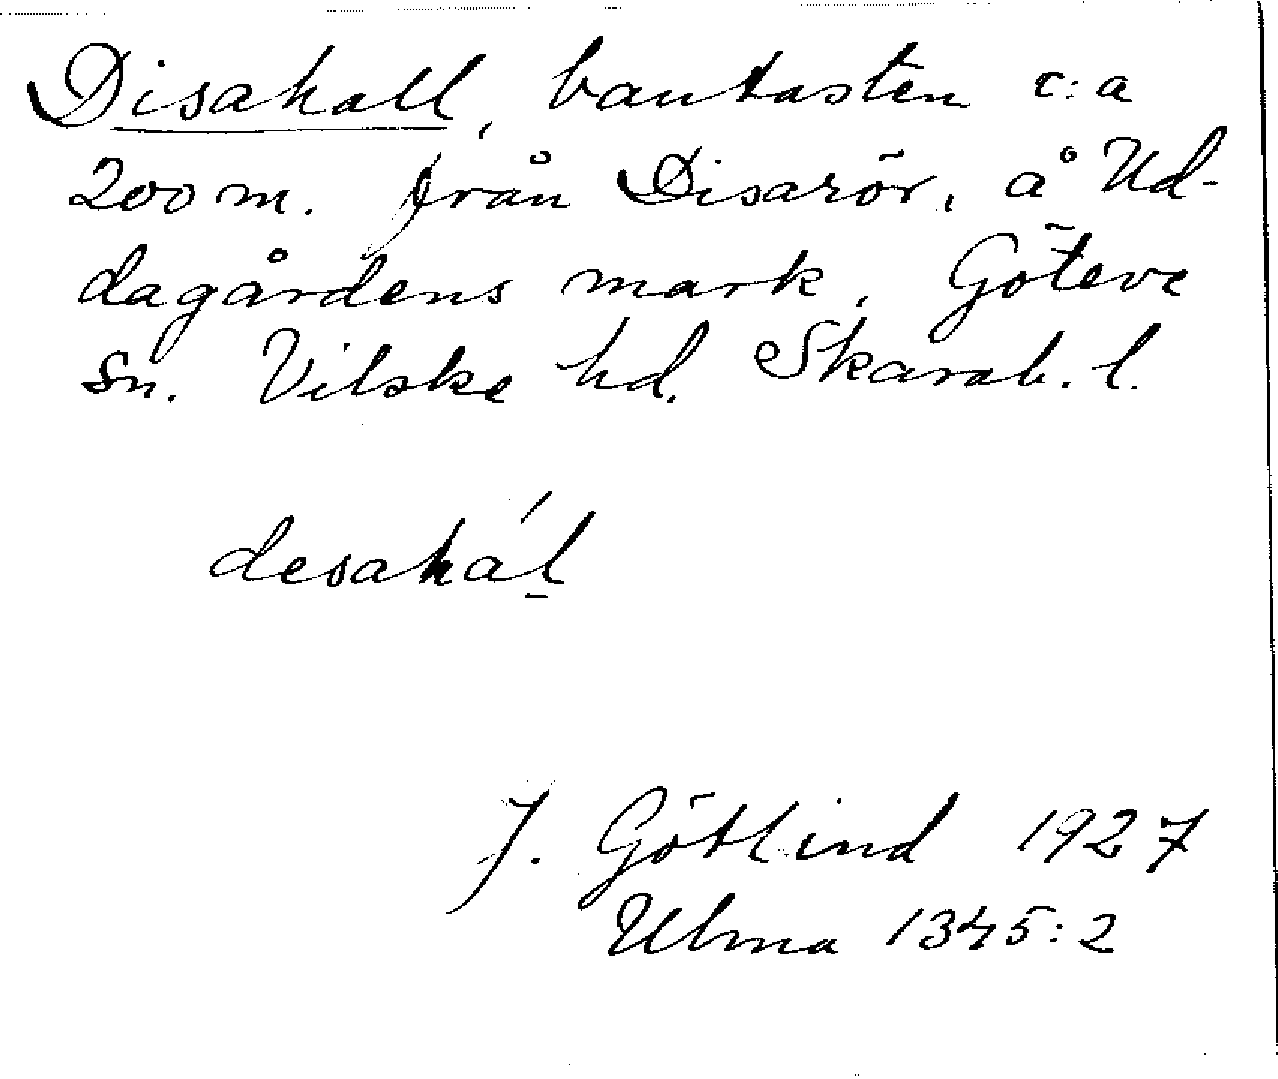 Disahall, bautasten c:a
200 m. från Disarör, å Ud-
dagårdens mark, Göteve
sn. Vilske hd. Skarab. l.
desahál̲
J. Götlind 1927
Ulma 1345:2